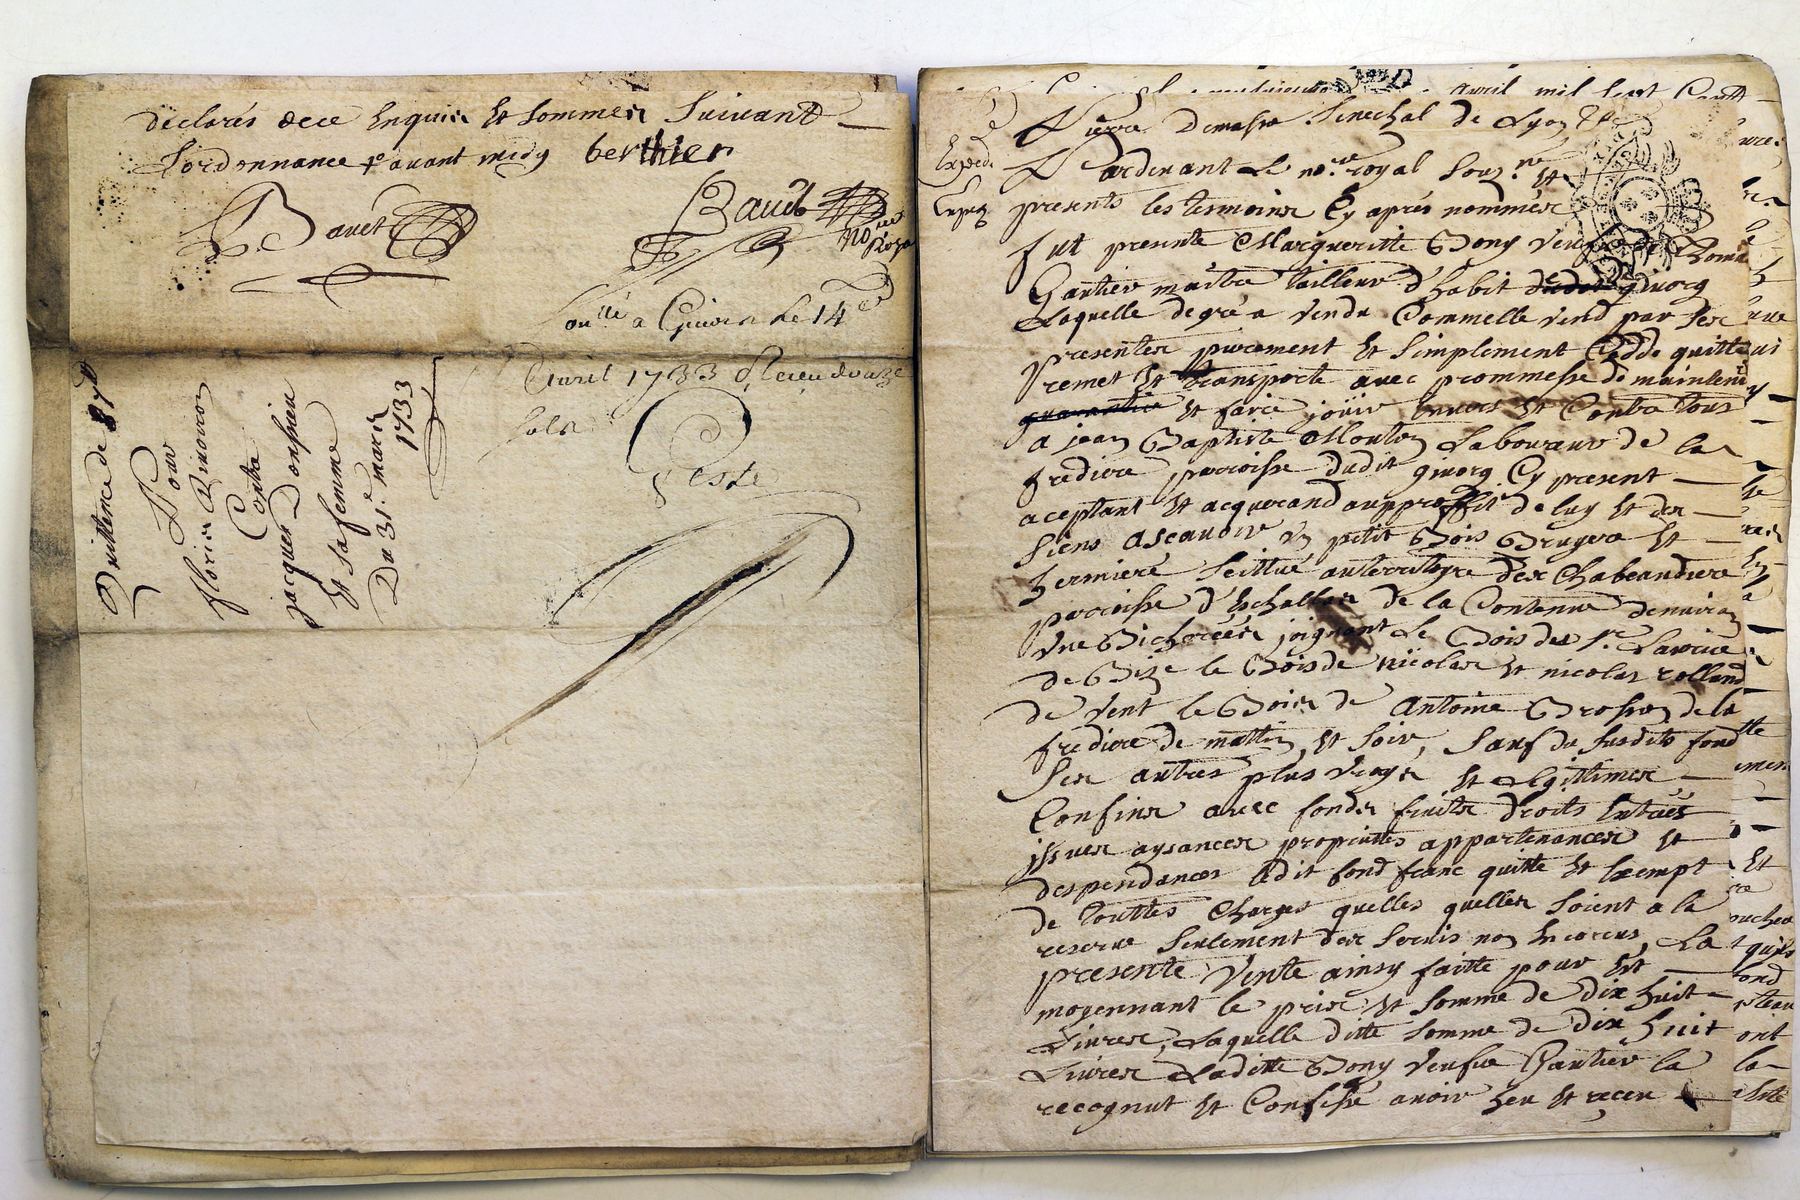 declarés de ce Enquis et sommés suivant
Lordonnance et avant midy berthier
Bavet
Baudt
nore Royal
Conllé a Givors le 14e
Avril 1733 Receu douze
sols
Teste
Quittence de 87 ll
Pour
fleurie
Contre
jacques Donsieu
et sa femme
Du 31e mars
1733
avril mil sept Cent
Pierre Demasso senechal de Lyon
Expedié
Pardevant Le nore royal souzne et
presents les tesmoins Cy aprés nommés
fut presente Margueritte Bony Veufve de Thomas
Gantier maitre tailleur d'habit de givorg
Laquelle de gré a vendu Comme elle vend par ses
presentes purement et simplement Cedde quitte
remet et transporte avec prommesse de maintenir
garantie et faire joüir Envers et Contre tous
a jean Baptiste Mouton Laboureur de la
frediere parroisse dudit givorg Cy present
aceptant et acquerand au proffit de luy et des
siens ascavoir un petit Bois Bruyere et
hermiere scittué au territoyre des Chabeaudiere
parroisse d'Eschallas de la Contenue denviron
Une Bicherées joignant Le Bois des Sr. Laurice
de Bize le Bois de nicolas et nicolas rolland
de Vent le Bois de Antoine Brosson de la
frediere de mattin et soir, sauf du susdits fond
ses autres plus vrays et Legittimes
Confins avec fonds fruits droits Entrées
issues aysances proprietés appartenances et
despendances ledit fond franc quitte et Exempt
de touttes Charges quelles quelles soient a la
reserve seulement des servis non Encorus, La
presente Vente ainsy faitte pour Et
moyennant le prix et somme de dix huit
Livres, Laquelle ditte somme de dix huit
Livres Laditte Bony veufve Gantier la
recognut et Confessé avoir heu et receu